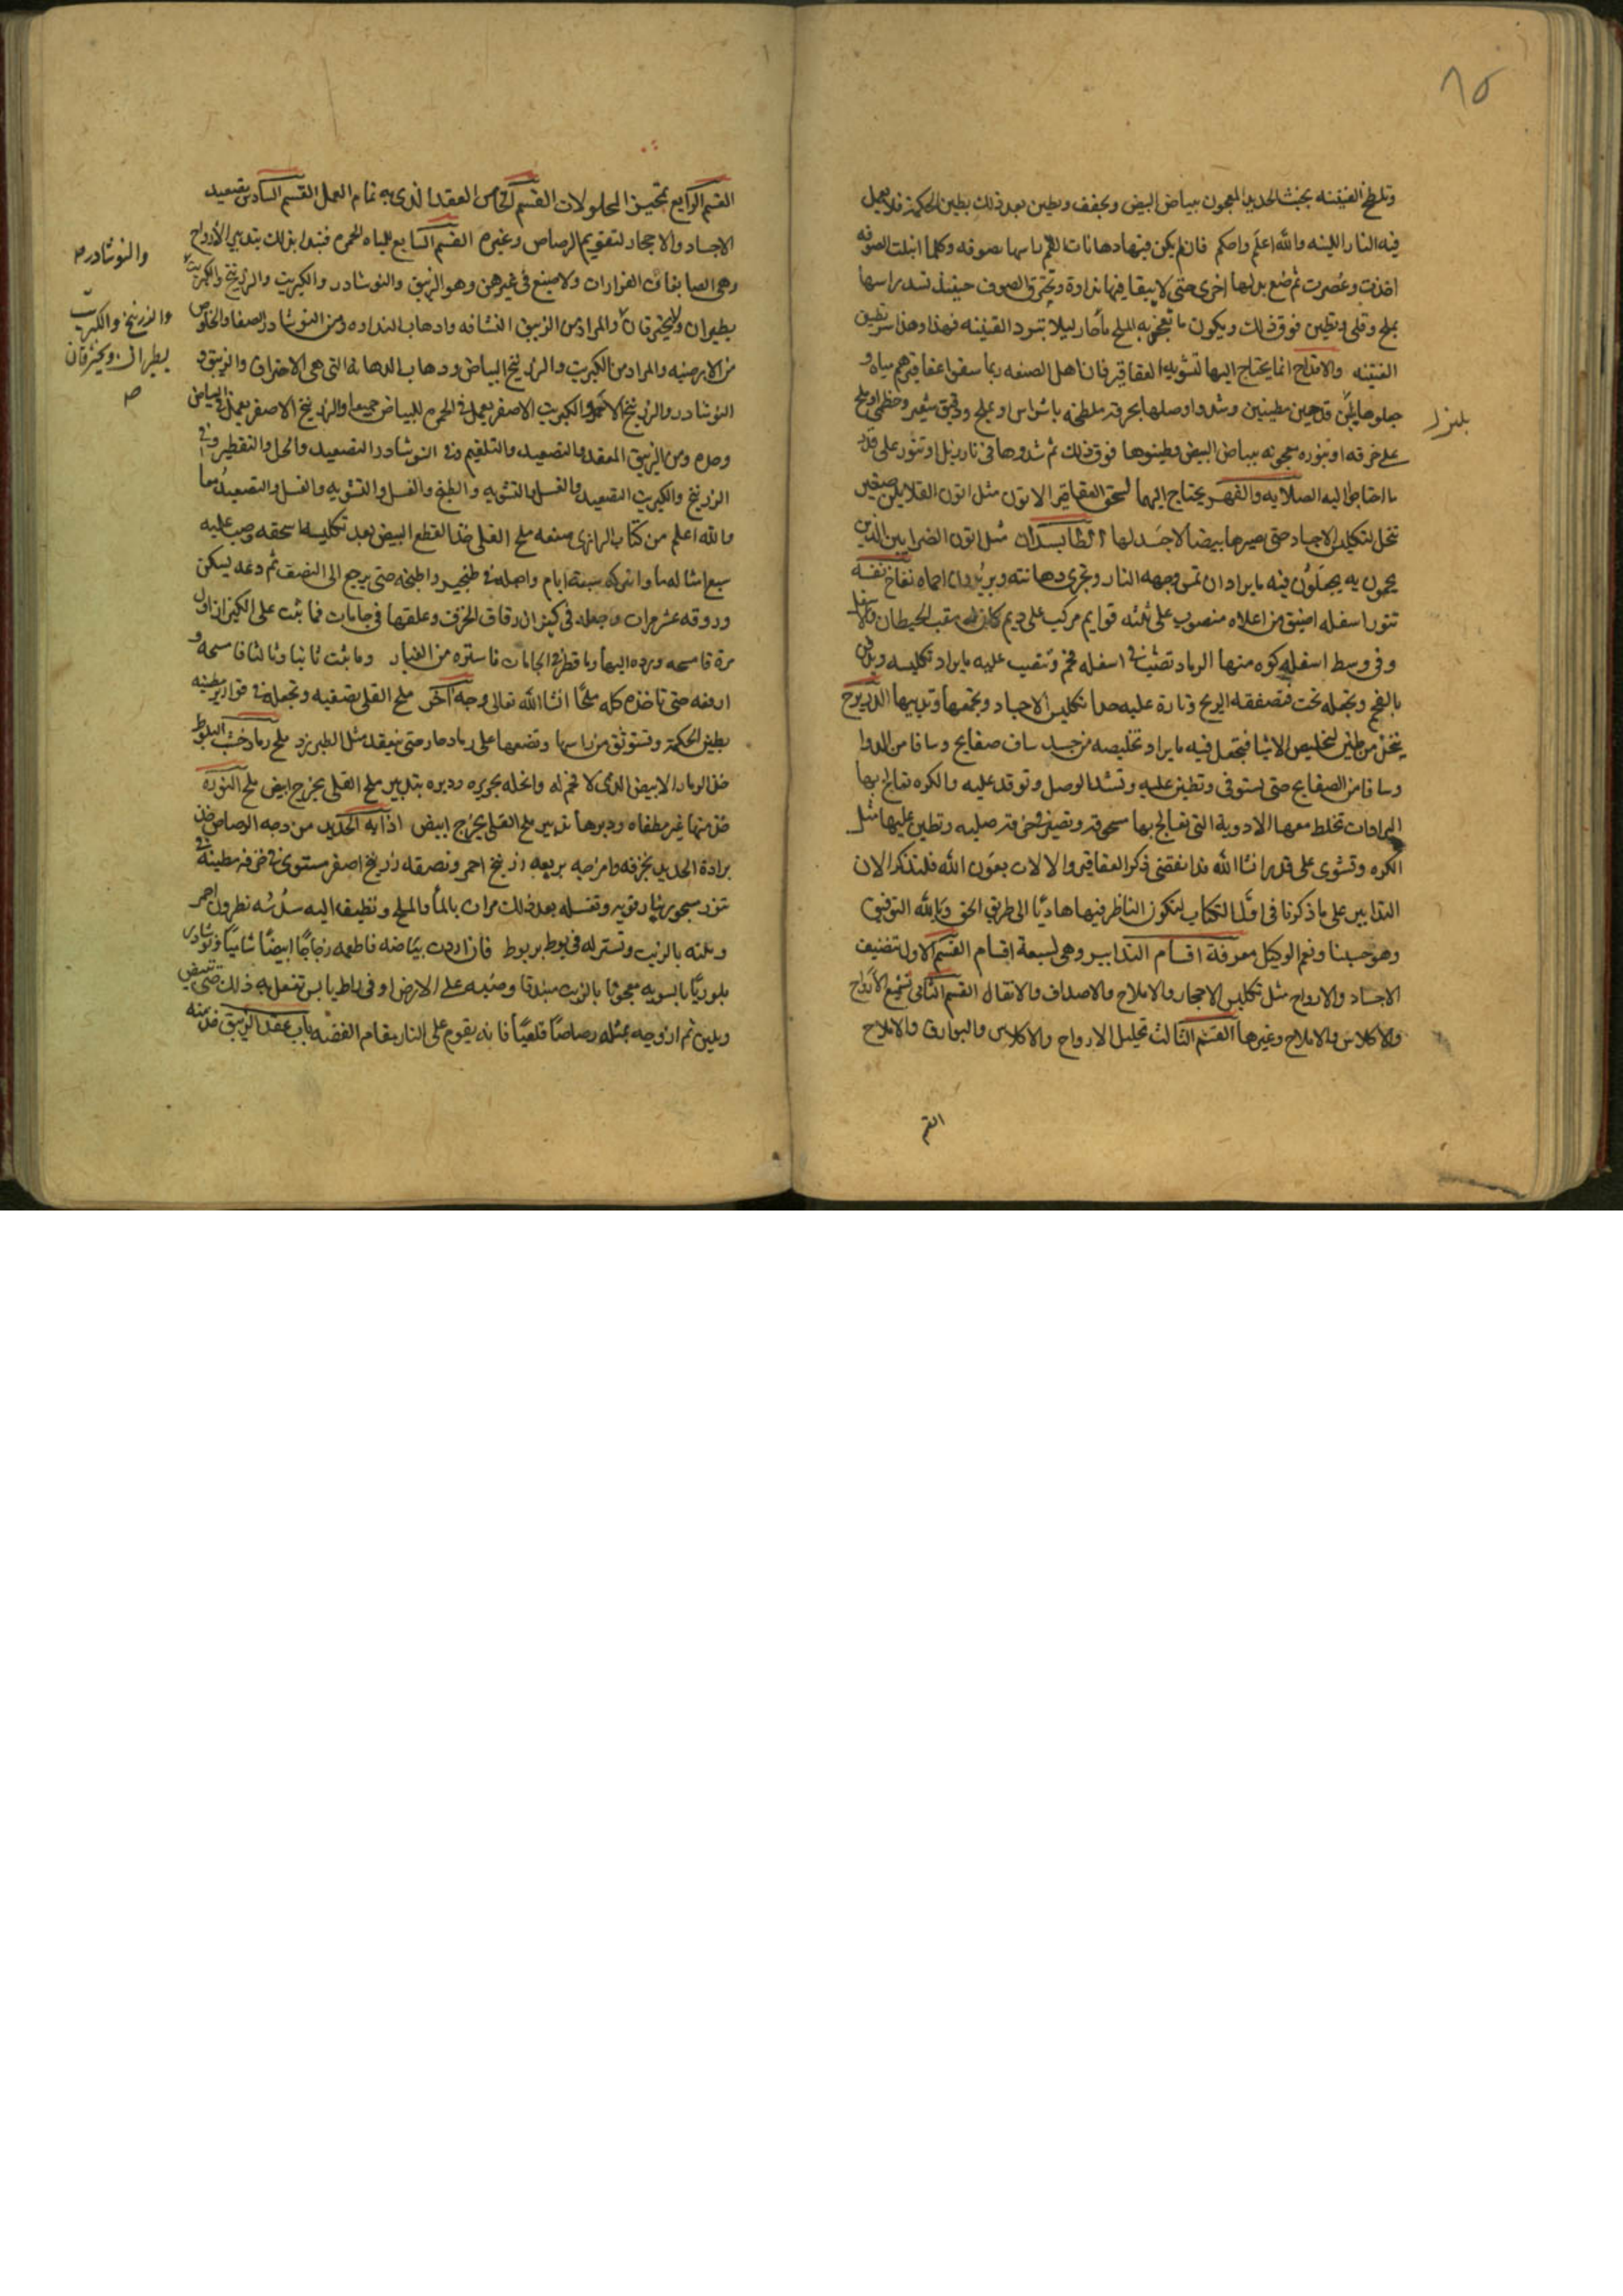 ٨٥
وتلطخ القنينه بخبث الحديد المعجون ببياض البيض ويجفف ويطين بعد ذلك بطين الحكمة فلا يعمل
فيه النار اللينه والله اعلم واحكم فان لم يكن فيها دهانات راسها بصوفه وكلما ابتلت الصوفه
اخذت وعصرت ثم ضع بدلها اخرى حتى لا يبقا فيها نداوة وتحترق الصوف حينئذ تسد راسها
بملح وقلى ويطين فوق ذلك ويكون ما تعجن به الملح ماء حار ليلا تبرد القنينه فهذا وهذا تطيين
القنينه والاقداح انما يحتاج اليها لتشويه العقاقير فان اهل الصنعه ربما سقوا عقاقيرهم مياه و
جعلوها بين قدحين مطينين وشدوا وصلها بخرقه ملطخه باشراس او بملح ودقيق شعير وخطمى او ملح
على خرقه او بنوره معجونه ببياض البيض وطينوها فوق ذلك ثم شووها فى نار زبل او تنور على قدر
ما احتاط اليه الصلايه والفهر يحتاج اليهما لسحق العقاقير الاتون مثل اتون القلايين صغير
تتخذ لتكليس الاجساد حتى تصيرها بيضا لا جسد لها الطابسدان مثل اتون الضرابين الذين
يحمون به يجعلون فيه ما يراد ان تمس وجهه النار وتجرى دهانته نفاخ نفسه
تنور اسفله اضيق من اعلاه منصوب على ثلثه قوايم مركب على مثقب الحيطان والاسفل
وفى وسط اسفله كوه منها الرماد فى اسفله فحم وتنصب عليه ما يراد تكليسه
بالفحم وتجعله تحت فتصفقه الريح وتارة عليه حدا تكليس الاجساد وتجمعها الديرج
يتخذ من طين لتخليص الاشيا فتجعل فيه ما يراد تخليصه من جسد ساف صفايح وسافا من الدوا
وسافا من الصفايح حتى تستوفى وتطين عليه وتشد الوصل وتوقد عليه والكره تعالج بها
البرادات تخلط معها الادوية التى تعالج بها سحوقه وتصير فى خرقه صلبه وتطين عليها مثل
الكره وتشوى على قدر انشا الله قد انقضى ذكر العقاقير والالات بعون الله فلنذكر الان
التدابير على ما ذكرنا فى اول الكتاب ليكون الناظر فيها هاديًا الى طريق الحق وبالله التوفيق
وهو حسبنا ونعم الوكيل معرفة اقسام التدابير وهى سبعة اقسام القسم الاول تضيف
الاجساد والارواح مثل تكليس الاحجار والاملاح والاصداف والاثقال القسم الثانى تشميع الارواح
والاكلاس والاملاح وغيرها القسم الثالث تحليل الارواح والاكلاس والبوارق والاملاح
القسم
القسم الرابع تمحيز المحلولات القسم الخامس العقد الذى به تمام العمل القسم السادس تصعيد
الاجساد والاحجار لتقويم الرصاص وغيره القسم السابع المياه المحمره فنبدا بذلك بتدبير الارواح
وهى الصابغات الفرارات ولا صبغ فى غيرهن وهو الزيبق والنوشادر والكبريت والزرنيخ والكبريت
يطيران ولا يحترقان والمراد من الزيبق النشافه واذهاب النداوه ومن النوشادر الصفا والخلوص
من الارضيه والمراد من الكبريت والزرنيخ البياض وذهاب الدهانه التى هى الاحتراق والزيبق و
النوشادر والزرنيخ الاحمر والكبريت الاصفر يعمل فى الحمره للبياض جميعا والزرنيخ الاصفر يعمل فى البياض
وحده ومن الزيبق المعقد والتصعيد والتلغيم وفى النوشادر التصعيد والحل والتقطير وفى
الزرنيخ والكبريت التصعيد والغسل والتشويه والطبخ والغسل والتشويه والغسل والتصعيد معا
والله اعلم من كتاب الرازى صنعه ملح القلى خذ القطع البيض بعد تكليسه اسحقه وصب عليه
سبع امثاله ما واتركه سبعة ايام واجعله فى طنجير واطبخه حتى يرجع الى النصف ثم دعه يسكن
وروقه عشر مرات واجعله فى كيزان رقاق الخزف وعلقها فى جامات فما نبت على الكيزان اول
مرة فامسحه ورده اليها وما قطر فى الجامات فاستره من الغبار وما نبت ثانيا وثالثا فامسحه و
ارفعه حتى تاخذه كله ملحًا انشا الله تعالى وجه آخر ملح القلى تصفيه وتجعله فى قوارير مطينه
بطين الحكمة وتستوثق من راسها وتضعها على رماد حار حتى ينعقد مثل الطبرزد ملح رماد خشب البلوط
خذ الرماد الابيض الذى لا فحم له وانخله بحريره ودبره بتدبير ملح القلى يخرج ابيض ملح النوره
خذ منها غير مطفاه ودبرها تدبير ملح القلى يخرج ابيض اذابه الحديد من وجه الرصاص خذ
برادة الحديد بخرقه وامزجه بربعه زرنيخ احمر وتصرقه زرنيخ اصفر مستوى فى خرقه مطينه فى
تنور مسجور بنار قويه وتغسله بعد ذلك مرات بالماء والملح وتضيف اليه سدسه نطرون احمر
وبلته بالزيت وتستنزله فى بوط بربوط فان اردت بياضه فاطعمه زجاجًا ابيضًا شاميًا ونوشادر
بلوريًا بالسويه معجونا بالزيت مبندقا وصبه على الارض او فى راط يابس تفعل به ذلك حتى يبيض
ويلين ثم ازوجه بمثله رصاصًا قلعيًا فانه يقوم على النار مقام الفضه باب عقد الزيبق خذ منه
والنوشادر صح
والزرنيخ والكبريت
يطيران ويحترقان
صح